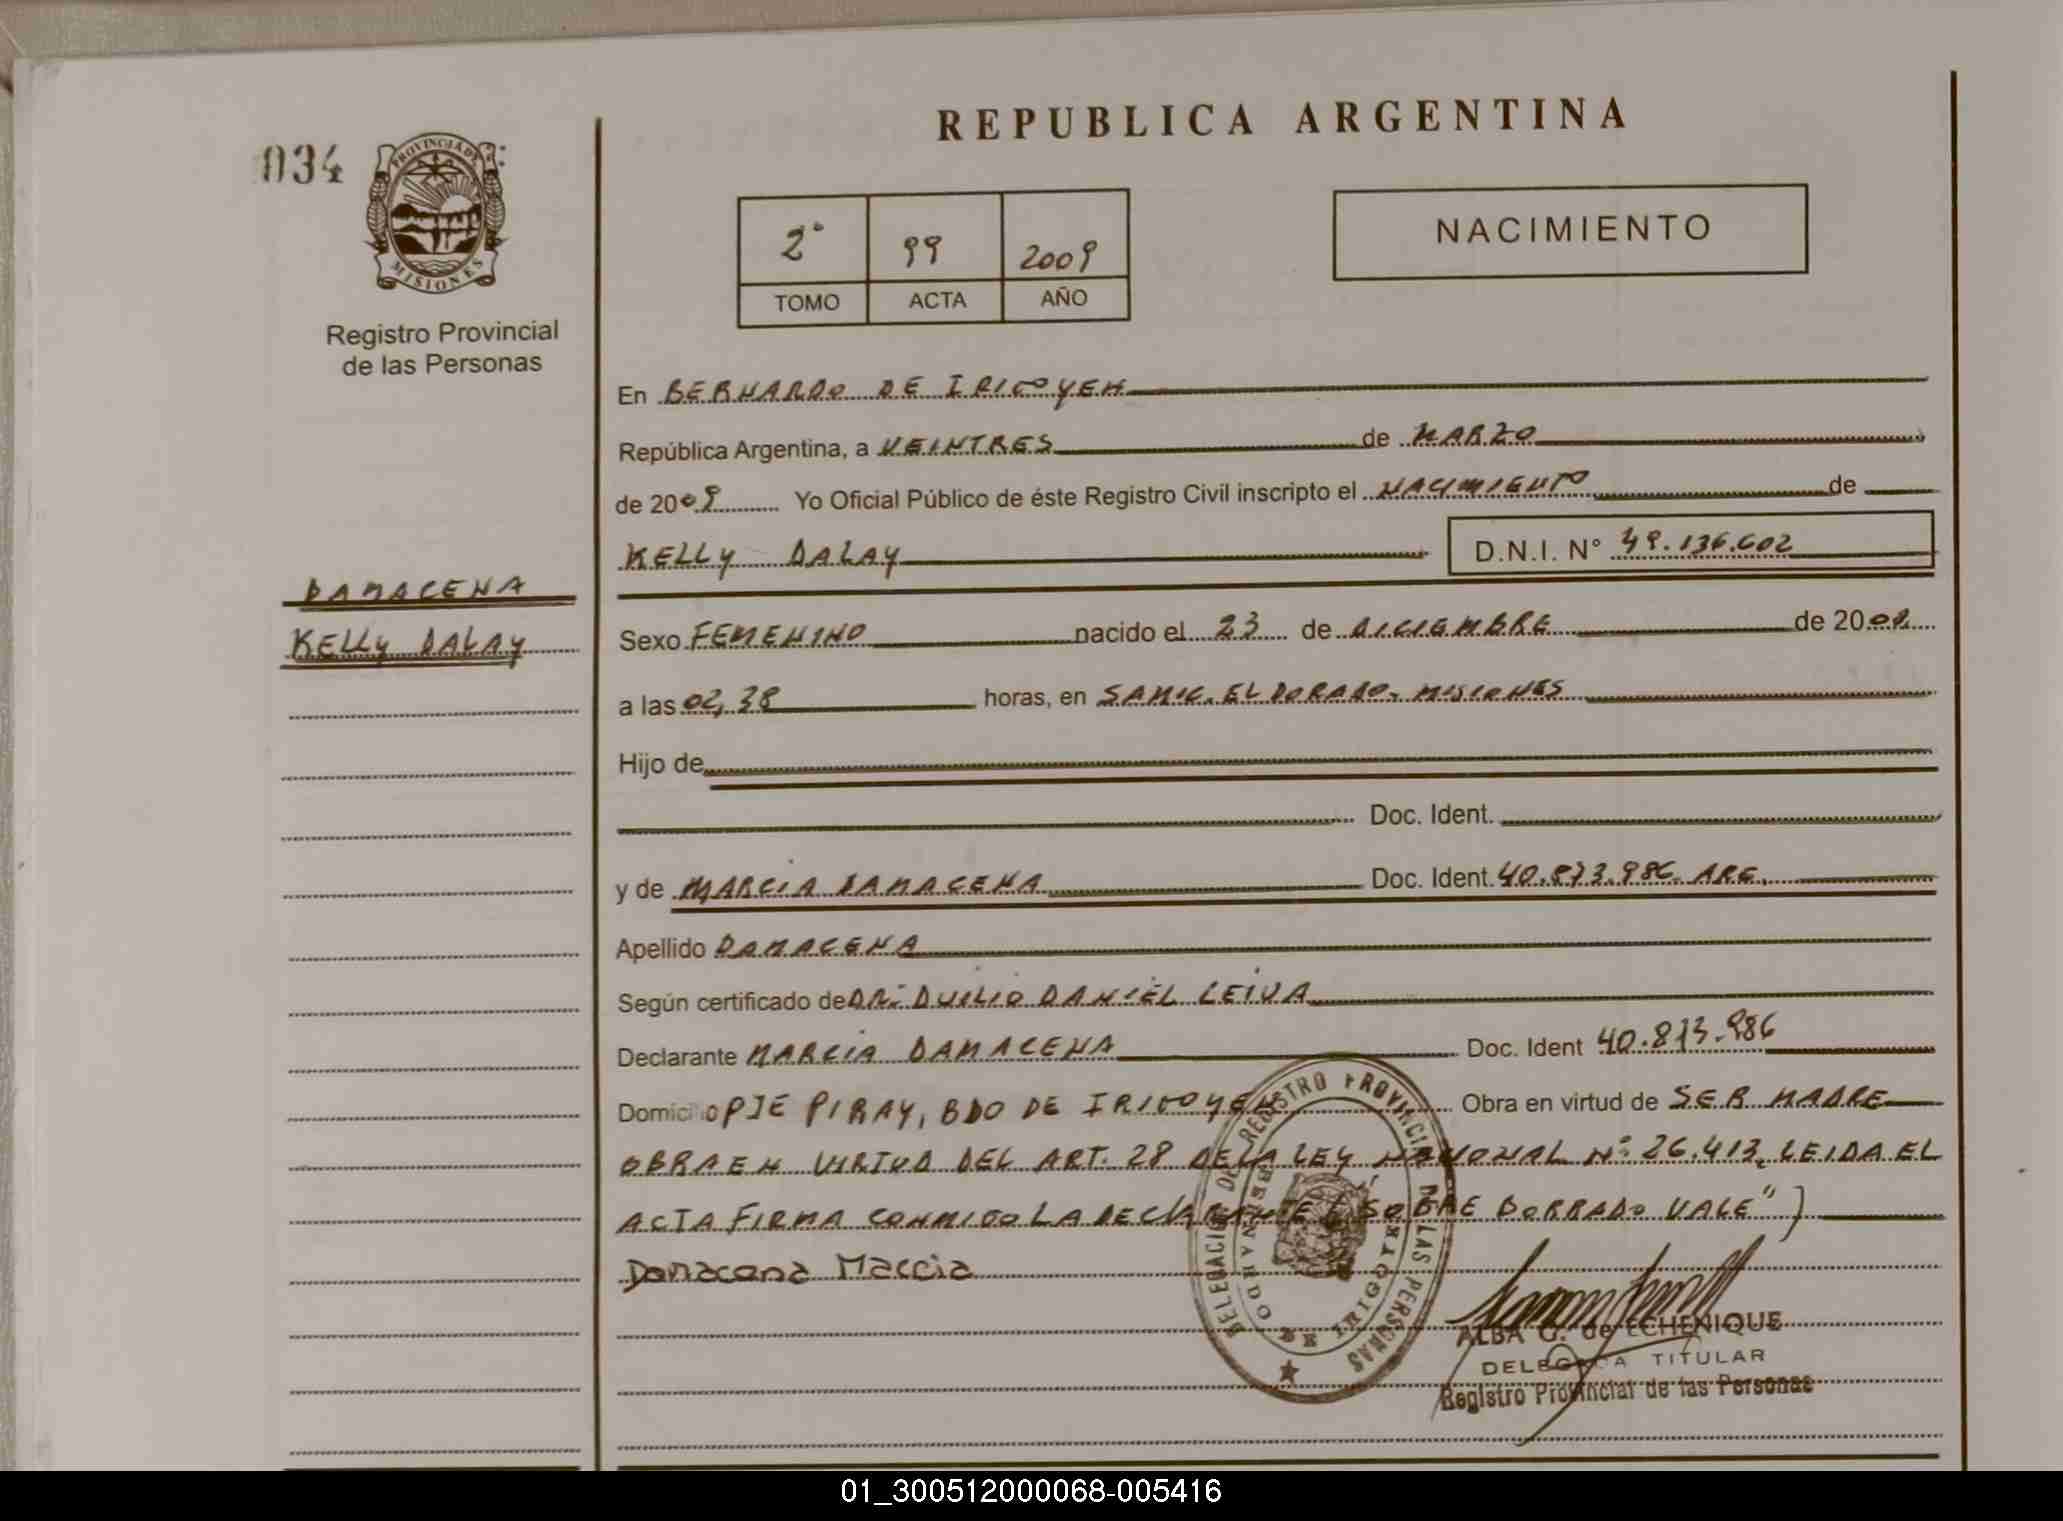 REPUBLICA ARGENTINA
034
PROVINCIA DE
MISIONES
Registro Provincial
de las Personas
2° 99 2009
TOMO ACTA AÑO
NACIMIENTO
En BERNARDO DE IRIGOYEN
República Argentina, a VEINTRES de MARZO
de 2009 Yo Oficial Público de éste Registro Civil inscripto el NACIMIENTO de
KELLY DALAY D.N.I. N° 49.136.602
DAMACENA
KELLY DALAY
Sexo FEMENINO nacido el 23 de DICIEMBRE de 2008
a las 02,38 horas, en SAMIC. ELDORADO- MISIONES
Hijo de
Doc. Ident.
y de MARCIA DAMACENA Doc. Ident. 40.873.986 ARG.
Apellido DAMACENA
Según certificado de DR: DUILIO DANIEL LEIVA
Declarante MARCIA DAMACENA Doc. Ident 40.873.986
Domicilio PJE PIRAY, BDO DE IRIGOYEN Obra en virtud de SER MADRE
OBRA EN VIRTUD DEL ART. 28 DE LA LEY NACIONAL N° 26.413, LEIDA EL
ACTA FIRMA CONMIGO LA DECLARANTE ( "SOBRE BORRADO VALE" )
Damacena Marcia
DELEGACION DE REGISTRO PROVINCIAL DE LAS PERSONAS
BERNARDO DE IRIGOYEN
ALBA G. de ECHENIQUE
DELEGADA TITULAR
Registro Provincial de las Personas
01_300512000068-005416